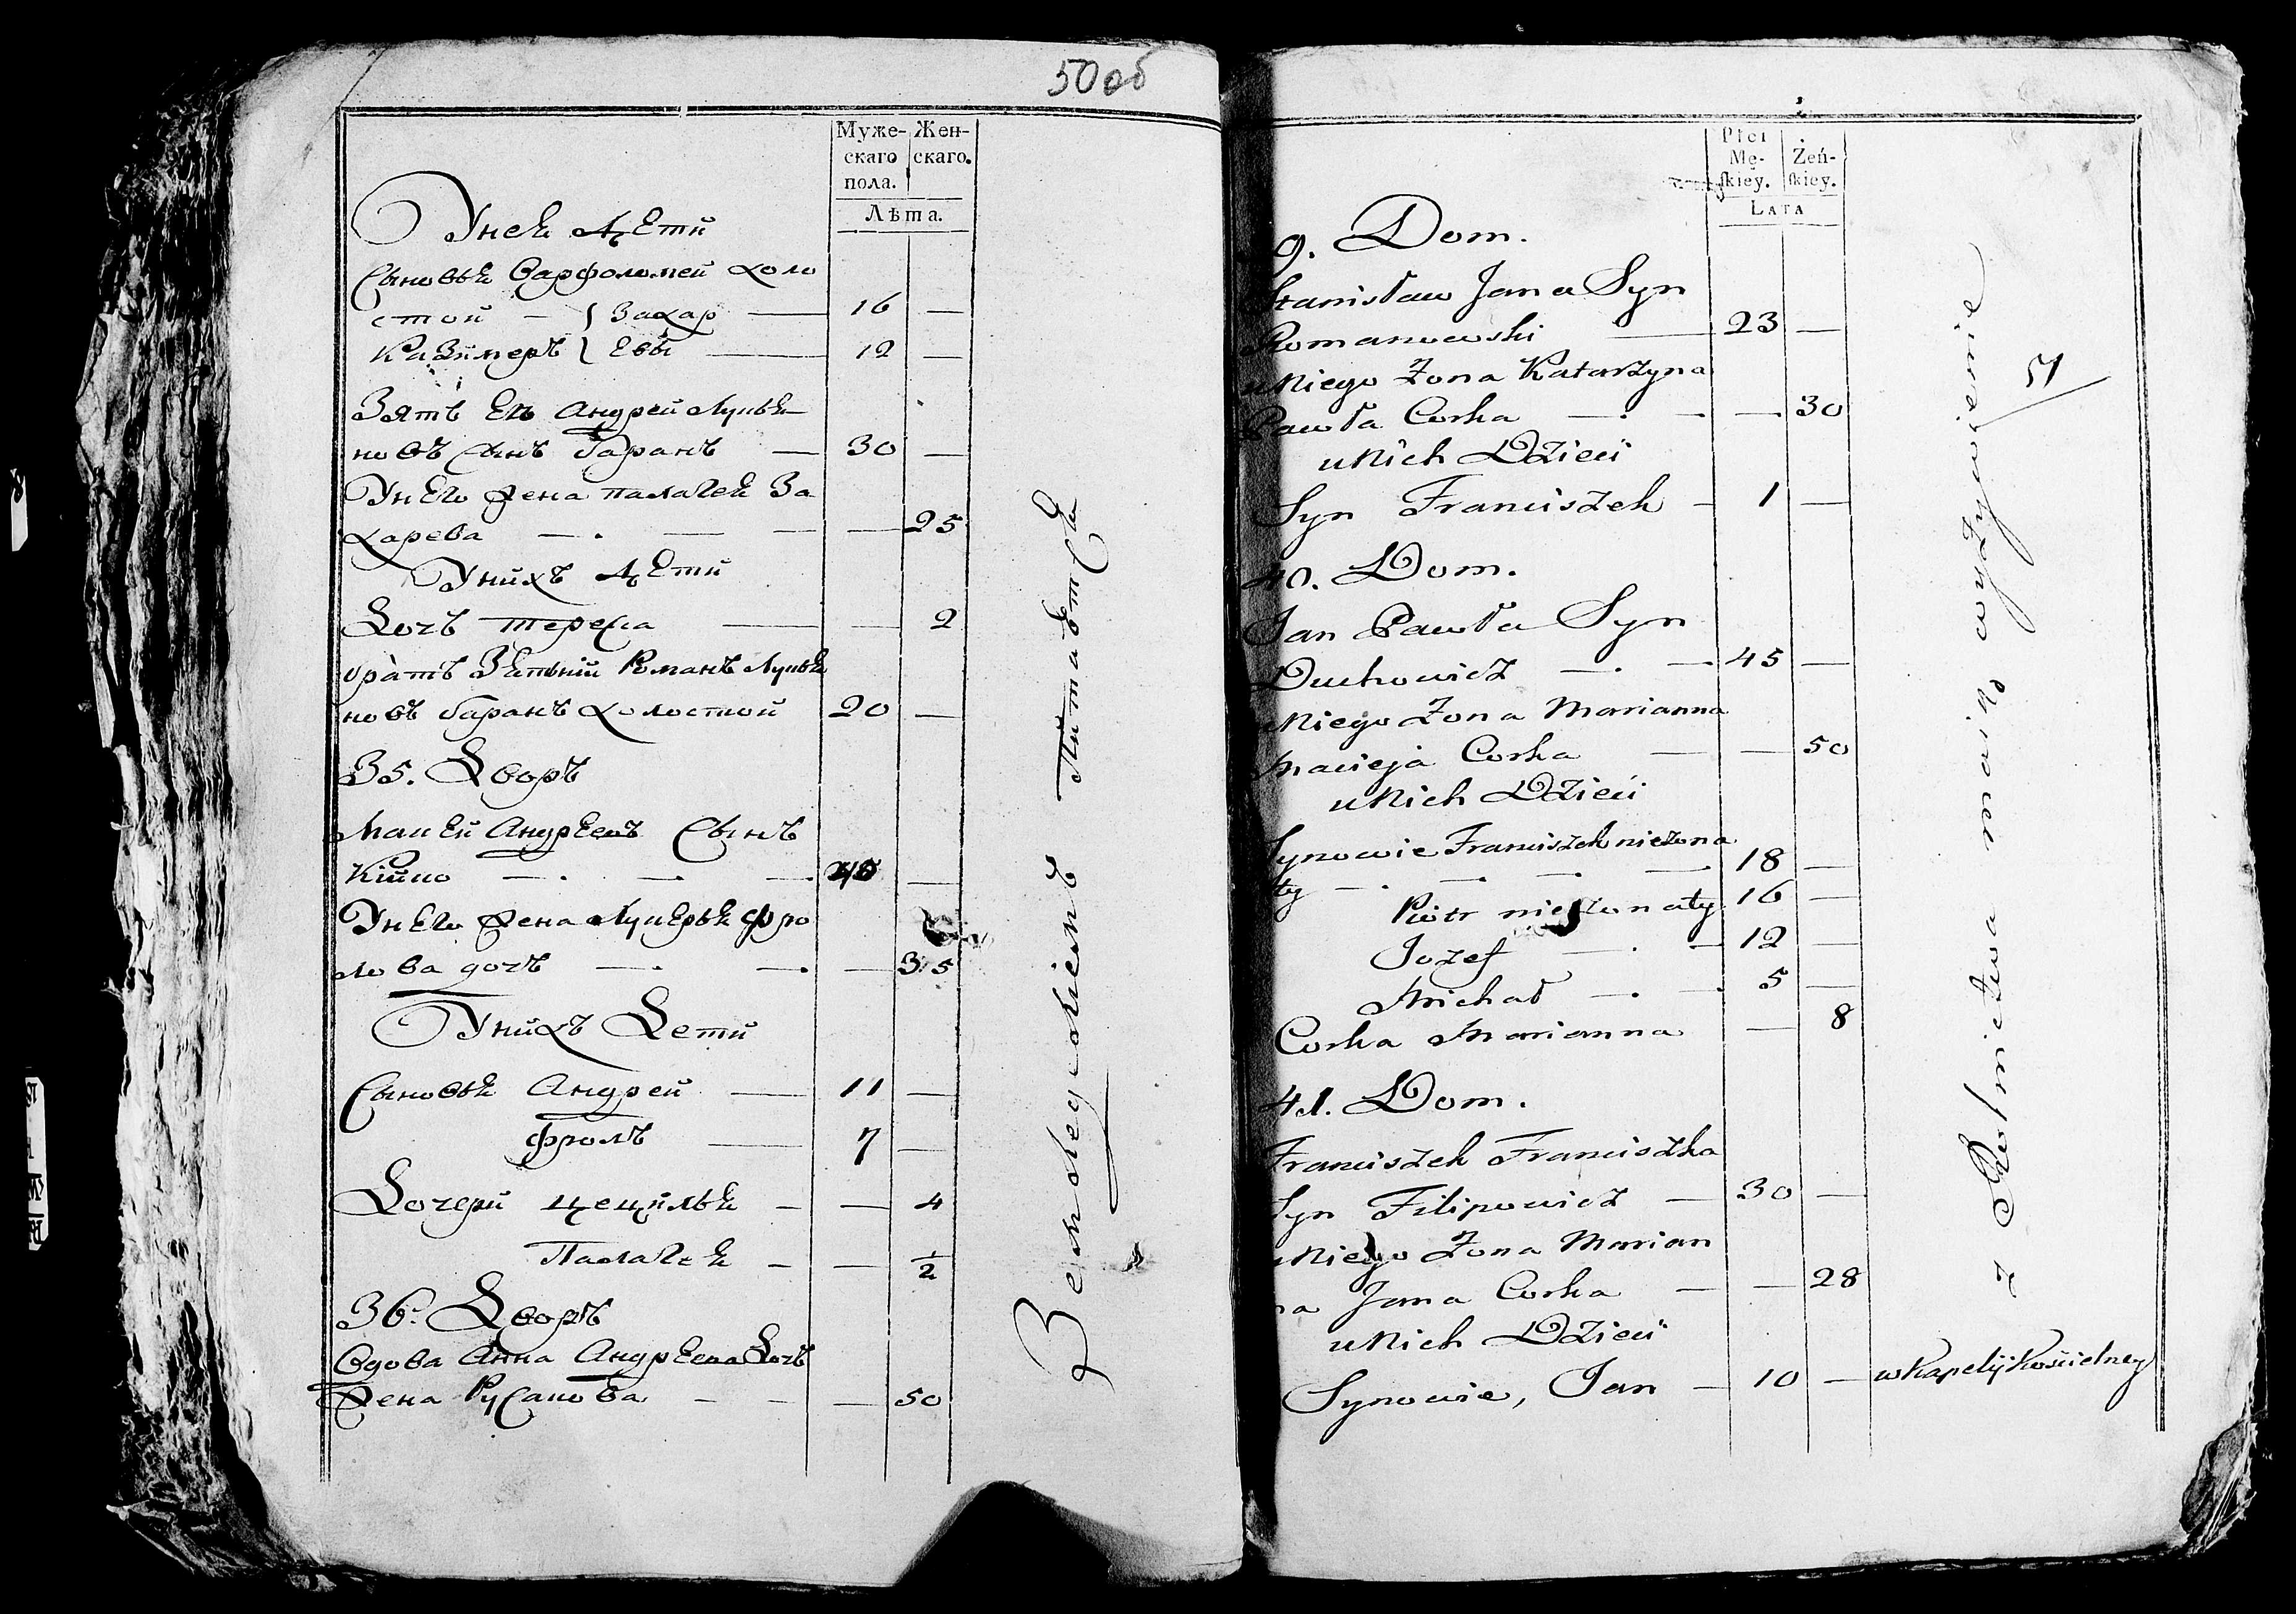 50 об
Муже-
скаго
пола.
Жен-
скаго.
Лѣта.
У нея дѣти
Сыновья Варфоломей холо
стой — } Захар — 16 —
Казимеръ } Евы — 12 —
Зять Ея Андрей Луця
новъ Сынъ Баранъ — 30 —
У нЕго жена Палагея За
харева — . — — — 25
У нихъ дѣти
Дочь Тереса — — 2
братъ Зятній Романъ Луця
новъ баранъ холостой 20 —
35. Дворъ
Мацей Андреевъ Сынъ
— . — — .
У нЕго жена Луцеря Фро
лова дочь — . — . — 35
У нихъ Дети
Сыновья Андрей — 11 —
Фролъ — 7 —
Дочери Цецилья — — 4
Палагея — — 1/2
36. Дворъ
Вдова Анна Андреева Дочь
жена Русанова — — — 50
Земледелiемъ питается
Płci
Mę-
skiey.
Żeń-
skiey.
LATA
9. Dom.
Stanisław Jana Syn
Romanowski — 23 —
u Niego Żona Katarzyna
Pawła Corka — . — — 30
u Nich Dzieci
Syn Franciszek — 1 —
40. Dom.
Jan Pawła Syn
Duchowicz — . — 45 —
u Niego Żona Marianna
Macieja Corka — — 50
u Nich Dzieci
Synowie Franciszek nieżona
ty — . — — — 18 —
Piotr nieżonaty 16 —
Jozef — . — 12 —
Michał — . — 5 —
Corka Marianna — 8
41. Dom.
Franciszek Franciszka
Syn Filipowicz — 30 —
u Niego Żona Marian
na Jana Corka — — 28
u Nich Dzieci
Synowie, Jan — 10 — w Kapelij Kościelney
z Rolnictwa maią wyżywienie
51